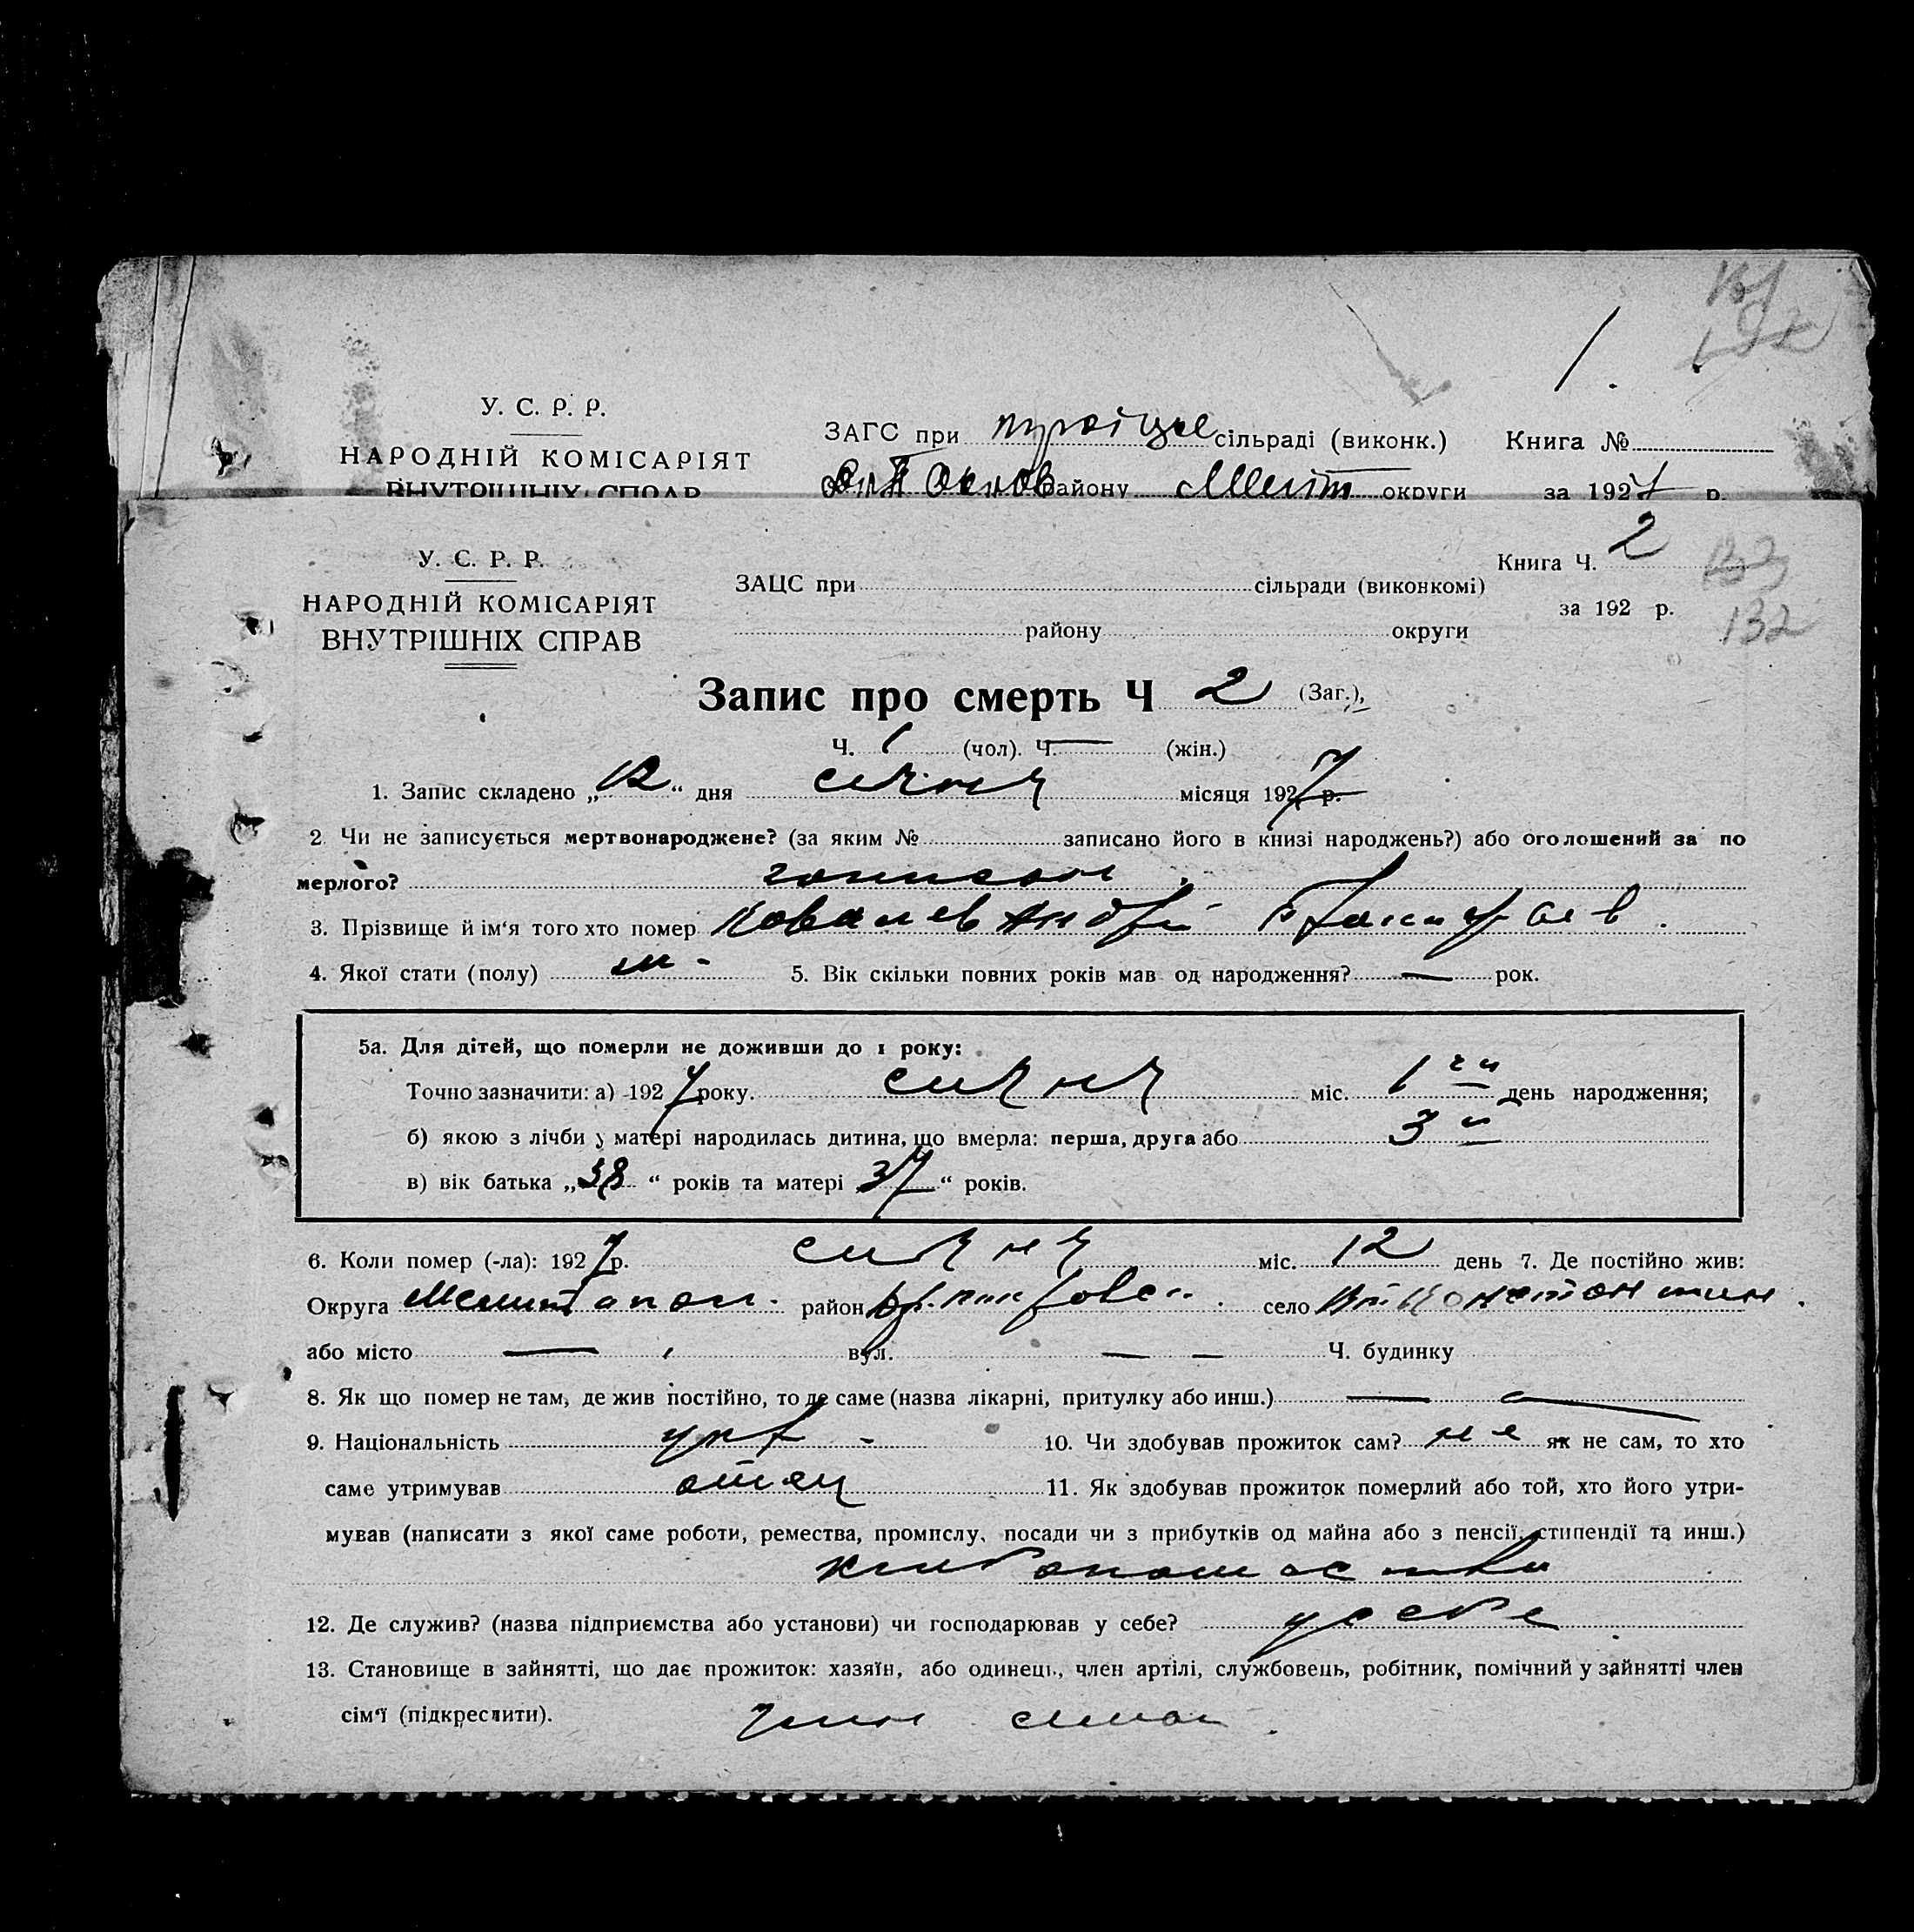 1.
У. С. Р. Р.
НАРОДНІЙ КОМІСАРІЯТ
ВНУТРІШНІХ СПРАВ
ЗАГС при сільраді (виконк.)
району Меліт округи
Книга №
за 1927 р.
У. С. Р. Р.
НАРОДНІЙ КОМІСАРІЯТ
ВНУТРІШНІХ СПРАВ
ЗАЦС при сільради (виконкомі)
району округи
Книга Ч. 2
за 192 р.
132
Запис про смерть Ч 2 (Заг.),
Ч. 1 (чол). Ч. — (жін.)
1. Запис складено „12“ дня січня місяця 1927 р.
2. Чи не записується мертвонароджене? (за яким № записано його в книзі народжень?) або оголошений за по
мерлого?
3. Прізвище й ім'я того хто помер Ковалев Андрій
4. Якої стати (полу) м - 5. Вік скільки повних років мав од народження? — рок.
5а. Для дітей, що померли не доживши до 1 року:
Точно зазначити: а) 1927 року. січня міс. 1 день народження;
б) якою з лічби у матері народилась дитина, що вмерла: перша, друга або 3
в) вік батька „38“ років та матері 37“ років.
6. Коли помер (-ла): 1927 р. січня міс. 12 день 7. Де постійно жив:
Округа Мелитопол. район село Констонтин.
або місто — вул. — — Ч. будинку
8. Як що помер не там, де жив постійно, то де саме (назва лікарні, притулку або инш.) —
9. Національність укр - 10. Чи здобував прожиток сам? не як не сам, то хто
саме утримував отец 11. Як здобував прожиток померлий або той, хто його утри-
мував (написати з якої саме роботи, ремества, промислу, посади чи з прибутків од майна або з пенсії, стипендії та инш.)
12. Де служив? (назва підприємства або установи) чи господарював у себе? у себе
13. Становище в зайнятті, що дає прожиток: хазяїн, або одинець, член артілі, службовець, робітник, помічний у зайнятті член
сім'ї (підкреслити).